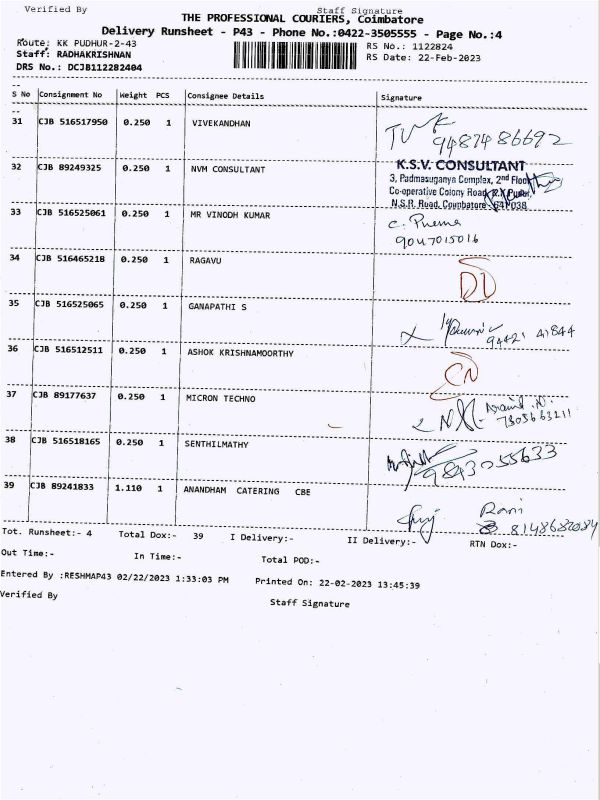 Verified By Staff Signature
THE PROFESSIONAL COURIERS, Coimbatore
Delivery Runsheet - P43 - Phone No.:0422-3505555 - Page No.:4
Route: KK PUDHUR-2-43 RS No.: 1122824
Staff: RADHAKRISHNAN RS Date: 22-Feb-2023
DRS No.: DCJB112282404
S No Consignment No Weight PCS Consignee Details Signature
31 CJB 516517950 0.250 1 VIVEKANDHAN
9487486692
32 CJB 89249325 0.250 1 NVM CONSULTANT
K.S.V. CONSULTANT
3, Padmasuganya Complex, 2nd Floor
Co-operative Colony Road, K.K.Pudur,
N.S.R. Road, Coimbatore - 641 038
33 CJB 516525061 0.250 1 MR VINODH KUMAR
C. Prema
9047015016
34 CJB 516465218 0.250 1 RAGAVU
35 CJB 516525065 0.250 1 GANAPATHI S
94421 41844
36 CJB 516512511 0.250 1 ASHOK KRISHNAMOORTHY
CN
37 CJB 89177637 0.250 1 MICRON TECHNO
38 CJB 516518165 0.250 1 SENTHILMATHY
9843055633
39 CJB 89241833 1.110 1 ANANDHAM CATERING CBE
Rani
8148682084
Tot. Runsheet:- 4 Total Dox:- 39 I Delivery:- II Delivery:- RTN Dox:-
Out Time:- In Time:- Total POD:-
Entered By :RESHMAP43 02/22/2023 1:33:03 PM Printed On: 22-02-2023 13:45:39
Verified By Staff Signature